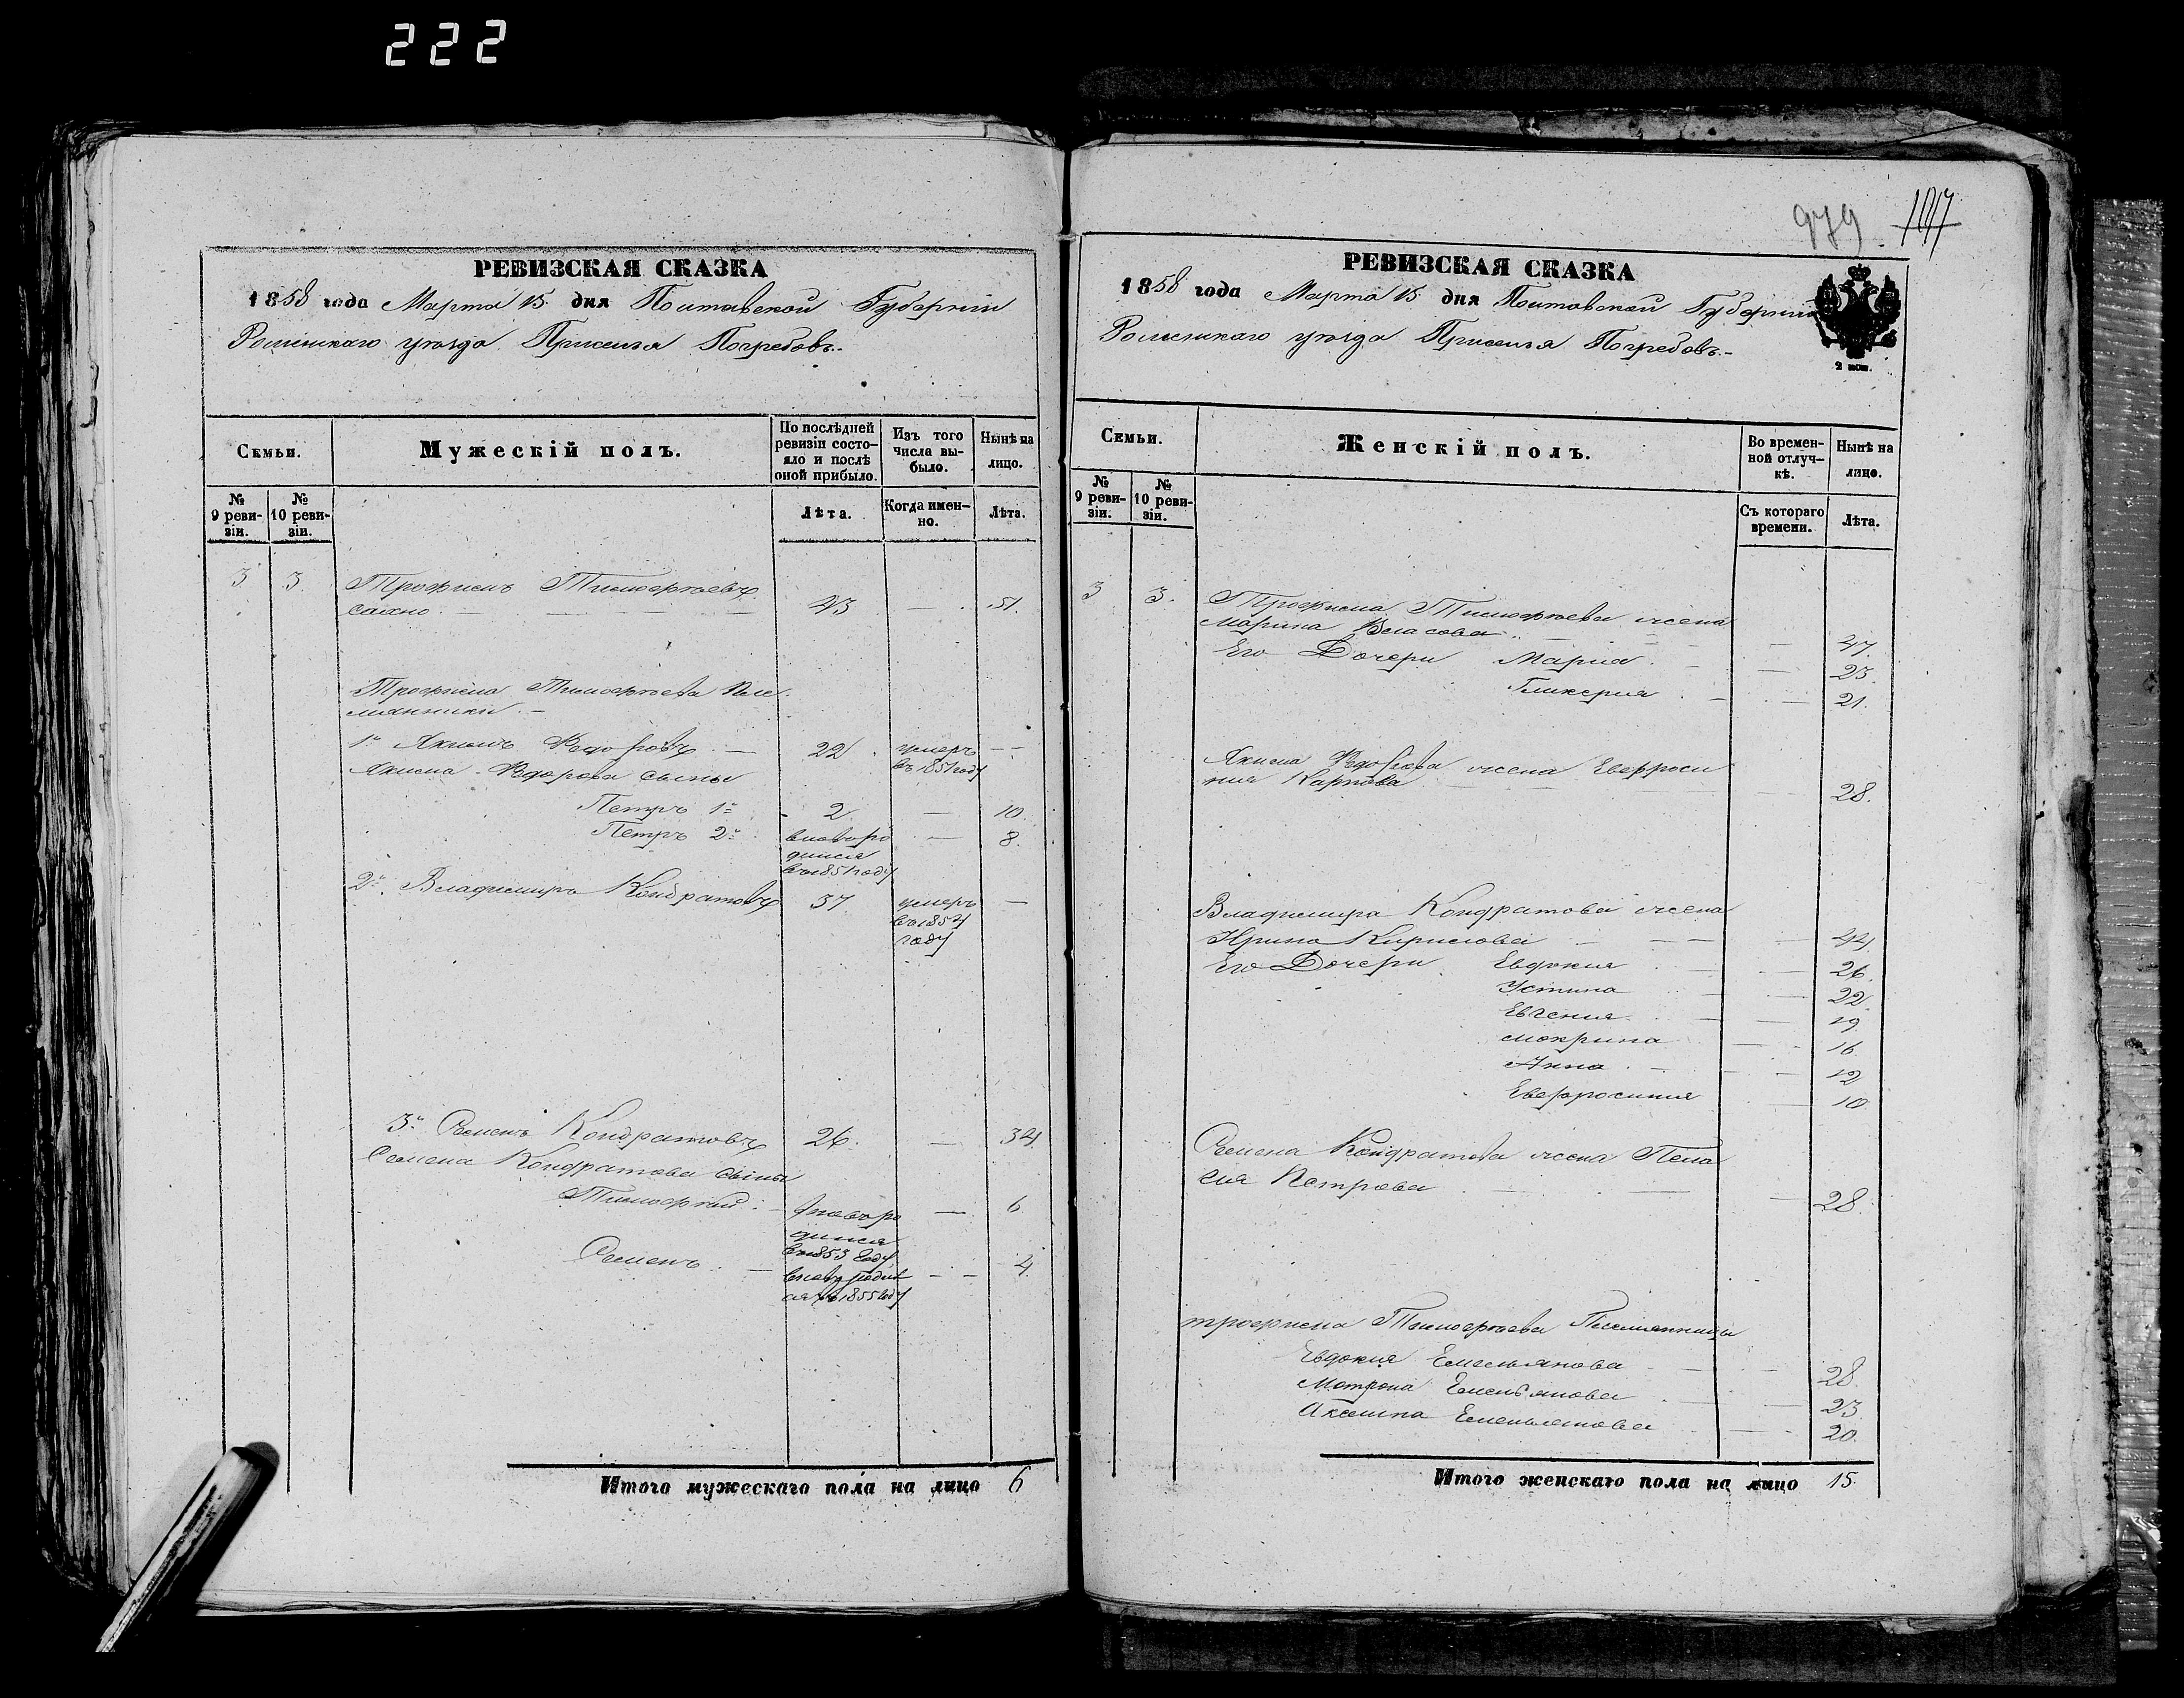 222
979 107
РЕВИЗСКАЯ СКАЗКА
1858 года Марта 15 дня Полтавской Губернии
Роменскаго уезда Приселья Погребовъ.
Семьи.
Мужескій полъ.
По послѣдней ревизіи состо-
яло и послѣ
оной прибыло.
Изъ того
числа вы-
было.
Нынѣ на
лицо.
№
9 реви-
зіи.
№
10 реви-
зіи.
Лѣта.
Когда имен-
но.
Лѣта.
3 3. Трофимъ Тимофѣевъ
Сахно. 43 — 51.
Трофима Тимофѣева Пле
мянники. -
1й Якимъ Ѳедоровъ — 22 умеръ — -
въ 1851 году
Якима Ѳедорова сыны
Петръ 1й 2 — 10.
Петръ 2й вновь ро — 8.
дился
въ 1851 году
2й Владимиръ Кондратовъ 37 умеръ —
въ 1854
году
3й Семенъ Кондратовъ 26. — 34
Семена Кондратова сыны
Тимофей вновь ро — 6
дился
въ 1853 году
Семенъ вновь родил — - 4
ся въ 1855 году
Итого мужескаго пола на лицо 6
РЕВИЗСКАЯ СКАЗКА
1858 года Марта 15 дня Полтавской Губернии
Роменскаго уезда Приселья Погребовъ.-
2 коп.
Семьи.
Женскій полъ.
Во времен-
ной отлуч-
кѣ.
Нынѣ на
лицо.
№
9 реви-
зіи.
№
10 реви-
зіи.
Съ котораго
времени.
Лѣта.
3 3. Трофима Тимофѣева жена
Марина Власова — 47.
Его Дочери Мария. — 23
Гликерия — 21.
Якима Ѳедорова жена Евфроси
ния Карпова — 28.
Владимира Кондратова жена
Ирина Кирилова — 44
Его Дочери Евдокия — 26
Устина — 22
Евгения — 19
Мокрина — 16
Анна — 12
Евфросиния — 10
Семена Кондратова жена Пела
гия Петрова — 28.
Трофима Тимофѣева Племянницы
Евдокия Емельянова — 28
Мотрона Емельянова — 23
Акилина Емельянова — 20.
Итого женскаго пола на лицо 15.